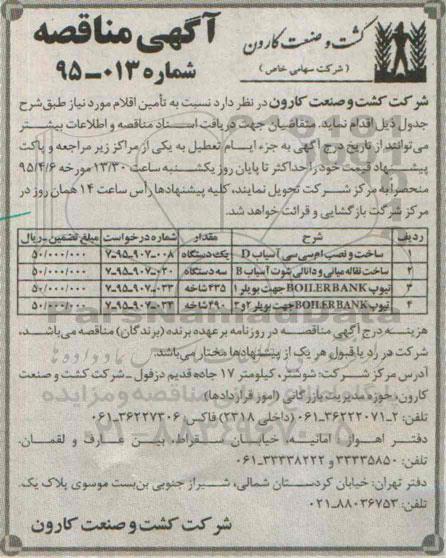 آگهی مناقصه
شماره ۰۱۳-۹۵
کشت و صنعت کارون
(شرکت سهامی خاص)
شرکت کشت و صنعت کارون در نظر دارد نسبت به تأمین اقلام مورد نیاز طبق شرح
جدول ذیل اقدام نماید. متقاضیان جهت دریافت اسناد مناقصه و اطلاعات بیشتر
می‌توانند از تاریخ درج آگهی به جزء ایام تعطیل به یکی از مراکز زیر مراجعه و پاکت
پیشنهاد قیمت خود را حداکثر تا پایان روز یکشنبه ساعت ۱۳/۳۰ مورخه ۹۵/۴/۶
منحصراً به مرکز شرکت تحویل نمایند، کلیه پیشنهادها رأس ساعت ۱۴ همان روز در
مرکز شرکت بازگشایی و قرائت خواهد شد.
ردیف شرح مقدار شماره درخواست مبلغ تضمین-ریال
۱ ساخت و نصب ام سی سی آسیاب D یک دستگاه ۷-۹۵-۹۰۷-۰۰۸ ۵۰/۰۰۰/۰۰۰
۲ ساخت نقاله میانی و دانالی شوت آسیاب B سه دستگاه ۷-۹۵-۹۰۷-۰۲۰ ۵۰/۰۰۰/۰۰۰
۳ تیوپ BOILER BANK جهت بویلر ۱ ۴۳۵ شاخه ۷-۹۵-۹۰۷-۰۳۳ ۵۰/۰۰۰/۰۰۰
۴ تیوپ BOILER BANK جهت بویلر ۲ و ۳ ۴۹۰ شاخه ۷-۹۵-۹۰۷-۰۳۴ ۵۰/۰۰۰/۰۰۰
هزینه درج آگهی مناقصه در روزنامه بر عهده برنده (برندگان) مناقصه می‌باشد،
شرکت در رد یا قبول هر یک از پیشنهادها مختار می‌باشد.
آدرس مرکز شرکت: شوشتر، کیلومتر ۱۷ جاده قدیم دزفول - شرکت کشت و صنعت
کارون، حوزه مدیریت بازرگانی (امور قراردادها)
تلفن: ۲-۳۶۲۲۲۰۷۱-۰۶۱ (داخلی ۲۳۱۸) فاکس ۳۶۲۲۷۳۰۶-۰۶۱
دفتر اهواز: امانیه خیابان سقراط، بین عارف و لقمان.
تلفن: ۳۳۳۳۵۸۵۰ و ۳۳۳۳۸۲۲۲-۰۶۱
دفتر تهران: خیابان کردستان شمالی، شیراز جنوبی بن‌بست موسوی پلاک یک.
تلفن: ۸۸۰۳۶۷۵۳-۰۲۱
شرکت کشت و صنعت کارون